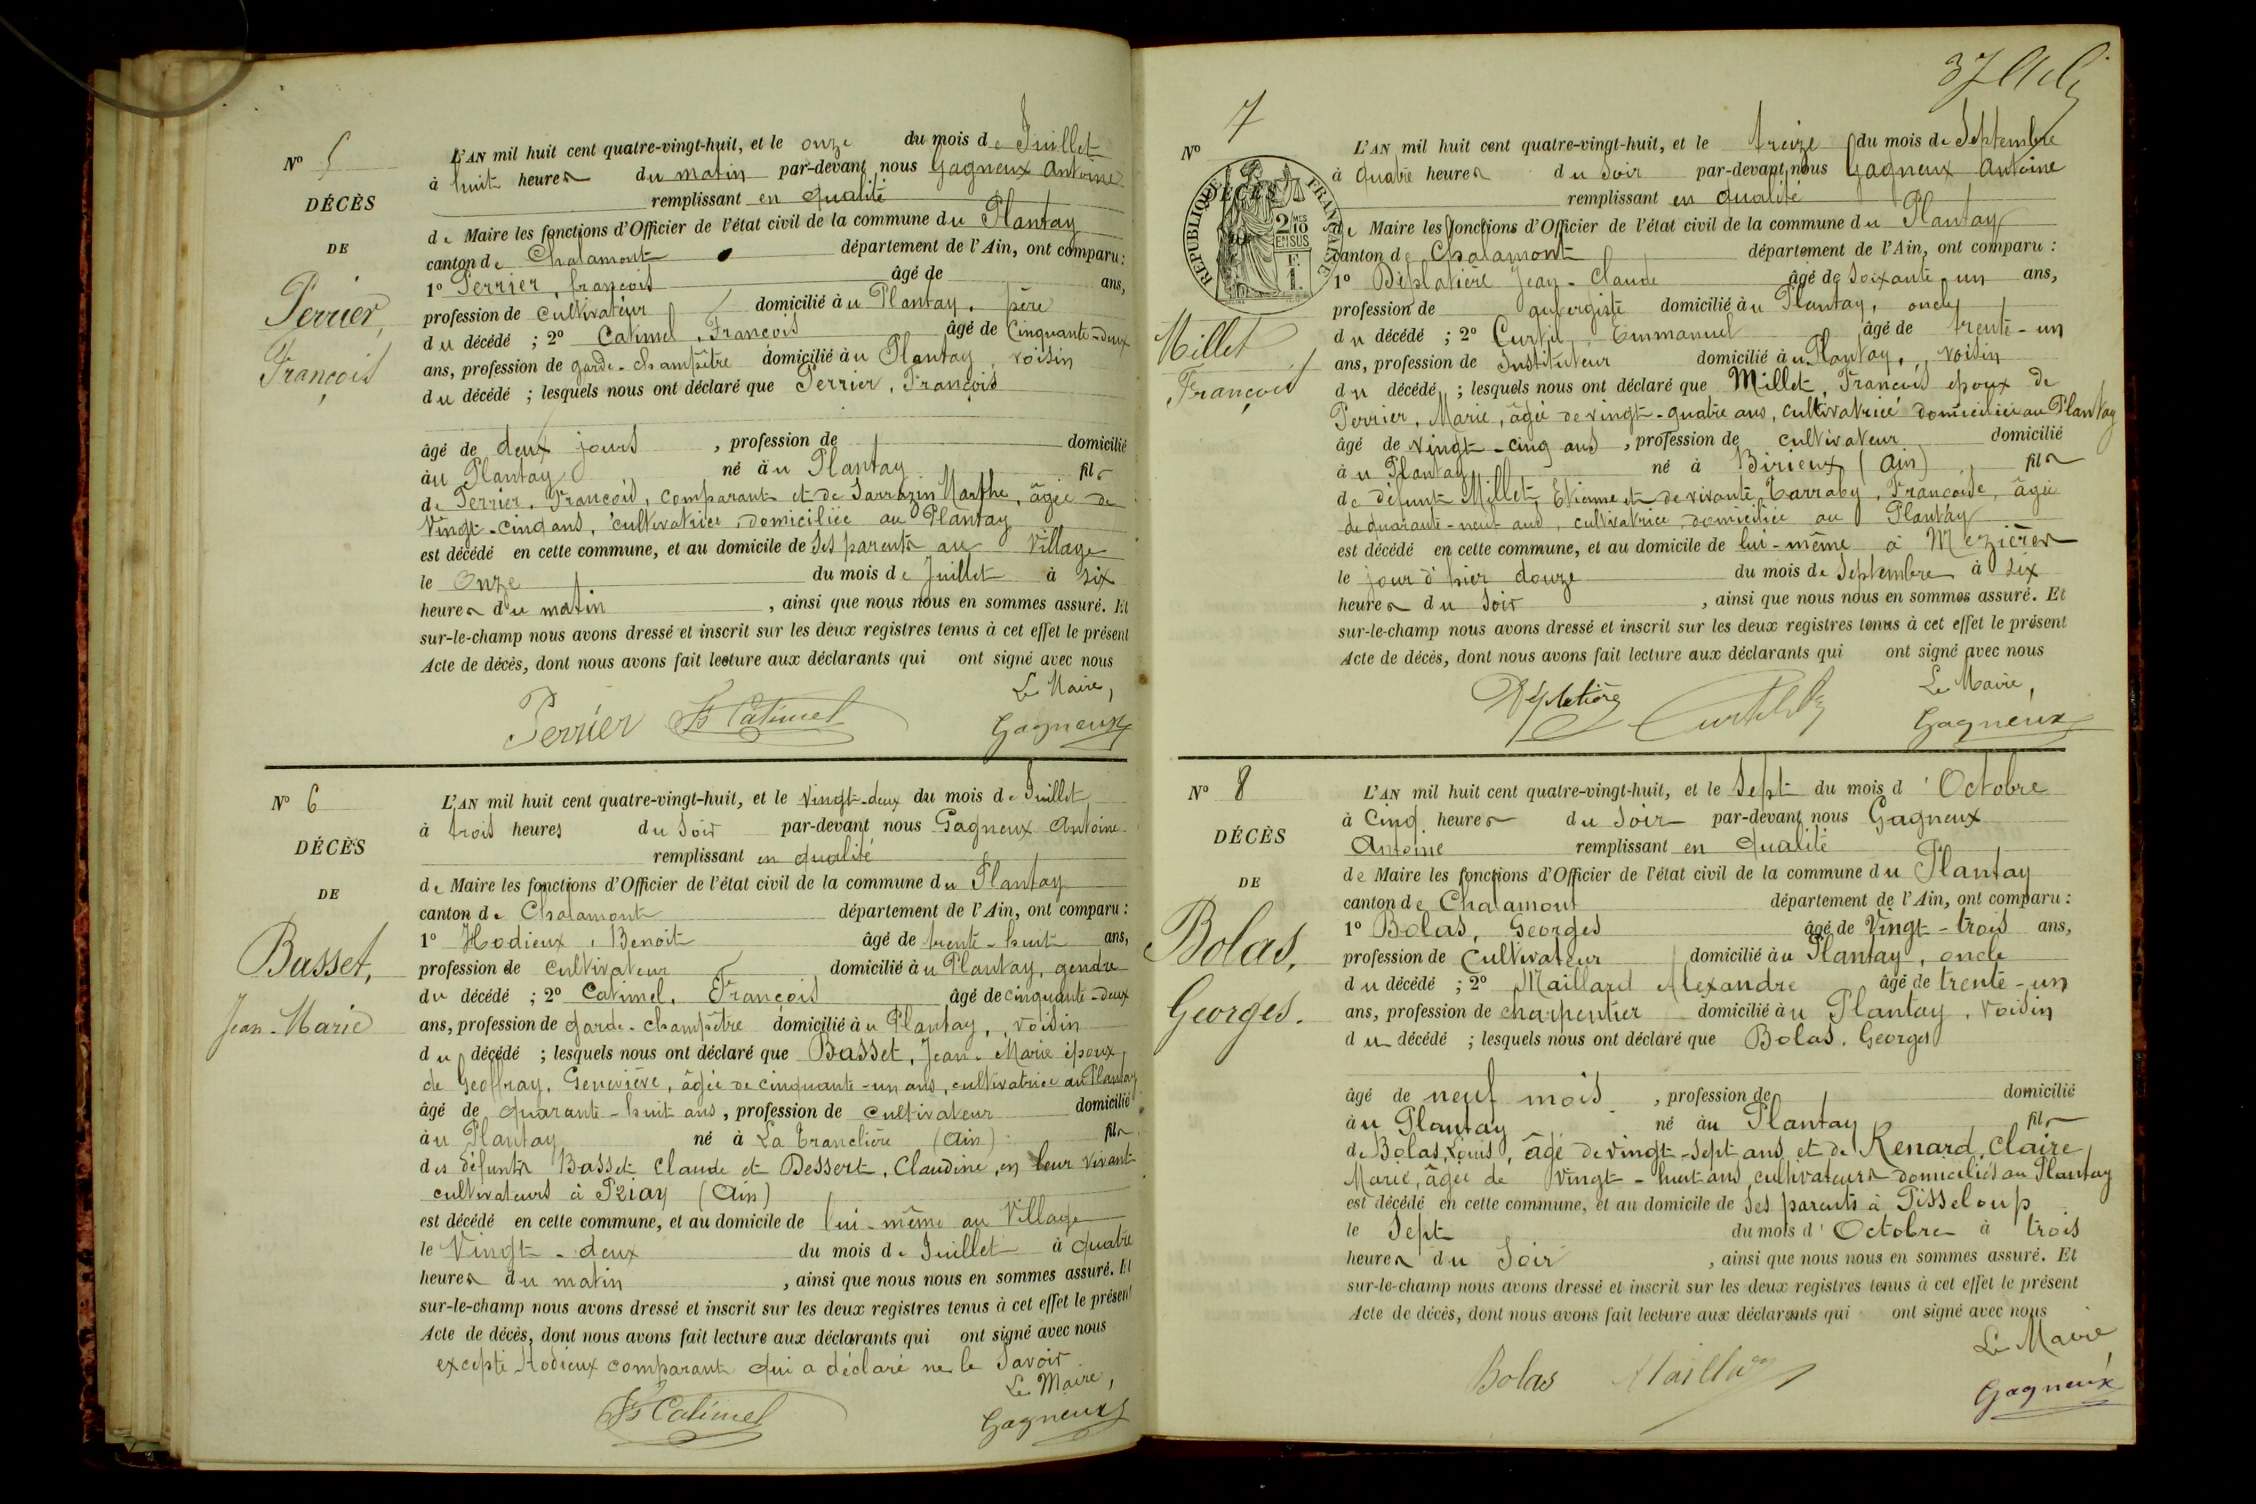 N° 5
DÉCÈS
DE
Perrier,
François
L'AN mil huit cent quatre-vingt-huit, et le onze du mois de Juillet
à huit heures du matin par-devant nous Gagneux Antoine
remplissant en qualité
de Maire les fonctions d'Officier de l'état civil de la commune du Plantay
canton de Chalamont département de l'Ain, ont comparu :
1° Perrier, françois âgé de ans,
profession de cultivateur domicilié au Plantay, père
du décédé ; 2° Catimel, François âgé de Cinquante-deux
ans, profession de garde-champêtre domicilié au Plantay, voisin
du décédé ; lesquels nous ont déclaré que Perrier, François
âgé de deux jours , profession de domicilié
au Plantay né au Plantay fils
de Perrier, François, comparant et de Sarrazin Marthe, âgée de
Vingt-cinq ans, cultivatrice, domiciliée au Plantay
est décédé en cette commune, et au domicile de ses parents au Village
le Onze du mois de Juillet à six
heures du matin , ainsi que nous nous en sommes assuré. Et
sur-le-champ nous avons dressé et inscrit sur les deux registres tenus à cet effet le présent
Acte de décès, dont nous avons fait lecture aux déclarants qui ont signé avec nous
Le Maire,
Perrier Fs Catimel Gagneux
N° 6
DÉCÈS
DE
Basset,
Jean-Marie
L'AN mil huit cent quatre-vingt-huit, et le Vingt-deux du mois de Juillet
à trois heures du Soir par-devant nous Gagneux Antoine
remplissant en qualité
de Maire les fonctions d'Officier de l'état civil de la commune du Plantay
canton de Chalamont département de l'Ain, ont comparu :
1° Hodieux, Benoit âgé de trente-huit ans,
profession de cultivateur domicilié au Plantay, gendre
du décédé ; 2° Catimel, François âgé de cinquante-deux
ans, profession de garde-champêtre domicilié au Plantay, voisin
du décédé ; lesquels nous ont déclaré que Basset, Jean-Marie époux
de Geoffray, Geneviève, âgée de cinquante-un ans, cultivatrice au Plantay
âgé de quarante-huit ans, profession de cultivateur domicilié
au Plantay né à La Tranclière (Ain) fils
des défunts Basset Claude et Dessert, Claudine, en leur vivant
cultivateurs à Priay (Ain)
est décédé en cette commune, et au domicile de lui-même au Village
le Vingt-deux du mois de Juillet à quatre
heures du matin , ainsi que nous nous en sommes assuré. Et
sur-le-champ nous avons dressé et inscrit sur les deux registres tenus à cet effet le présent
Acte de décès, dont nous avons fait lecture aux déclarants qui ont signé avec nous
excepté Hodieux comparant qui a déclaré ne le Savoir.
Le Maire,
Fs Catimel Gagneux
37
N° 7
DÉCÈS
RÉPUBLIQUE FRANÇAISE
2 MES
10
EN SUS
F.
1.
Millet
François
L'AN mil huit cent quatre-vingt-huit, et le treize du mois de Septembre
à quatre heures du Soir par-devant nous Gagneux Antoine
remplissant en qualité
de Maire les fonctions d'Officier de l'état civil de la commune du Plantay
canton de Chalamont département de l'Ain, ont comparu :
1° Déplatière Jean-Claude âgé de soixante un ans,
profession de aubergiste domicilié au Plantay, oncle
du décédé ; 2° Curtil, Emmanuel âgé de trente-un
ans, profession de Instituteur domicilié au Plantay, voisin
du décédé ; lesquels nous ont déclaré que Millet, François époux de
Perrier, Marie, âgée de vingt-quatre ans, cultivatrice domiciliée au Plantay
âgé de vingt-cinq ans , profession de cultivateur domicilié
au Plantay né à Birieux (Ain) fils
de défunt Millet, Etienne et de vivante Tarraby, Françoise, âgée
de quarante-neuf ans, cultivatrice domiciliée au Plantay
est décédé en cette commune, et au domicile de lui-même à Mezières
le jour d'hier douze du mois de Septembre à six
heures du Soir , ainsi que nous nous en sommes assuré. Et
sur-le-champ nous avons dressé et inscrit sur les deux registres tenus à cet effet le présent
Acte de décès, dont nous avons fait lecture aux déclarants qui ont signé avec nous
Le Maire,
Déplatière Curtil Gagneux
N° 8
DÉCÈS
DE
Bolas,
Georges.
L'AN mil huit cent quatre-vingt-huit, et le Sept du mois d'Octobre
à Cinq heures du Soir par-devant nous Gagneux
Antoine remplissant en qualité
de Maire les fonctions d'Officier de l'état civil de la commune du Plantay
canton de Chalamont département de l'Ain, ont comparu :
1° Bolas, Georges âgé de Vingt-trois ans,
profession de Cultivateur domicilié au Plantay, oncle
du décédé ; 2° Maillard Alexandre âgé de trente-un
ans, profession de charpentier domicilié au Plantay, voisin
du décédé ; lesquels nous ont déclaré que Bolas, Georges
âgé de neuf mois , profession de domicilié
au Plantay né au Plantay fils
de Bolas, Louis, âgé de vingt-sept ans et de Renard, Claire
Marie, âgée de Vingt-huit ans cultivateurs domiciliés au Plantay
est décédé en cette commune, et au domicile de ses parents à Pisseloup
le Sept du mois d'Octobre à trois
heures du Soir , ainsi que nous nous en sommes assuré. Et
sur-le-champ nous avons dressé et inscrit sur les deux registres tenus à cet effet le présent
Acte de décès, dont nous avons fait lecture aux déclarants qui ont signé avec nous
Le Maire,
Bolas Maillard Gagneux